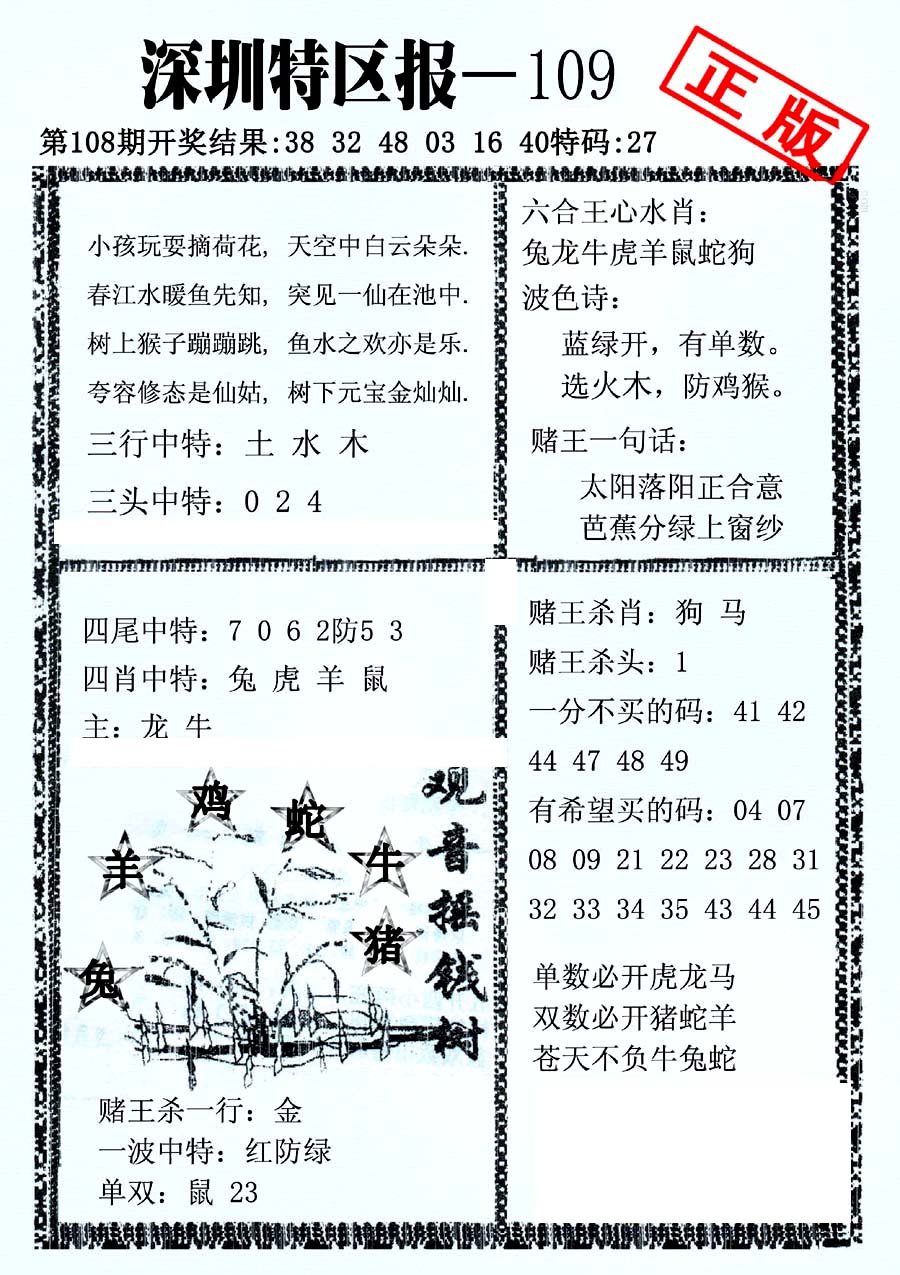 深圳特区报—109
正版
第108期开奖结果:38 32 48 03 16 40特码:27
小孩玩耍摘荷花, 天空中白云朵朵.
春江水暖鱼先知, 突见一仙在池中.
树上猴子蹦蹦跳, 鱼水之欢亦是乐.
夸容修态是仙姑, 树下元宝金灿灿.
三行中特: 土 水 木
三头中特: 0 2 4
六合王心水肖:
兔龙牛虎羊鼠蛇狗
波色诗:
蓝绿开，有单数。
选火木，防鸡猴。
赌王一句话:
太阳落阳正合意
芭蕉分绿上窗纱
四尾中特: 7 0 6 2防5 3
四肖中特: 兔 虎 羊 鼠
主: 龙 牛
鸡
蛇
羊
牛
猪
兔
观音摇钱树
赌王杀一行: 金
一波中特: 红防绿
单双: 鼠 23
赌王杀肖: 狗 马
赌王杀头: 1
一分不买的码: 41 42
44 47 48 49
有希望买的码: 04 07
08 09 21 22 23 28 31
32 33 34 35 43 44 45
单数必开虎龙马
双数必开猪蛇羊
苍天不负牛兔蛇